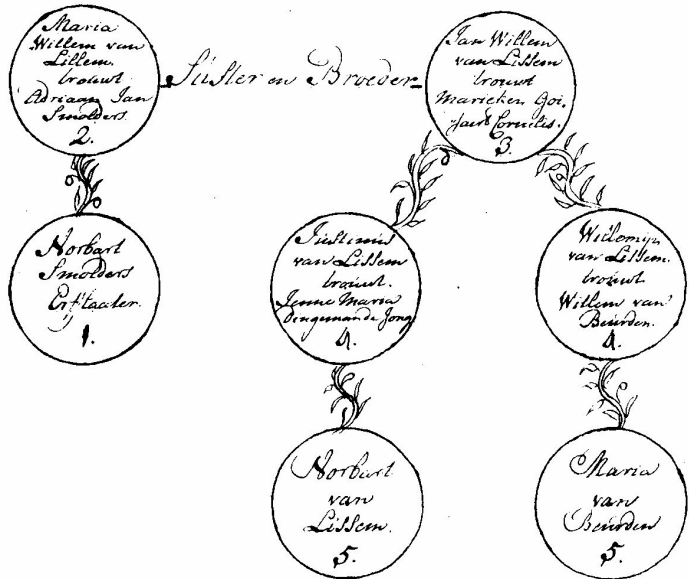 Maria
Willem van
Lissem.
trouwt
Adriaan Jan
Smolders.
2.
Suster en Broeder
Jan Willem
van Lissem
trouwt
Marieken Goi-
jaert Cornelis.
3.
Norbart
Smolders
Erflaater.
1.
Justinus
van Lissem
trouwt.
Jenne Maria
Dingemande Jong
4.
Willemijn
van Lissem.
trouwt
Willem van
Beurden.
4.
Norbart
van
Lissem.
5.
Maria
van
Beurden
5.